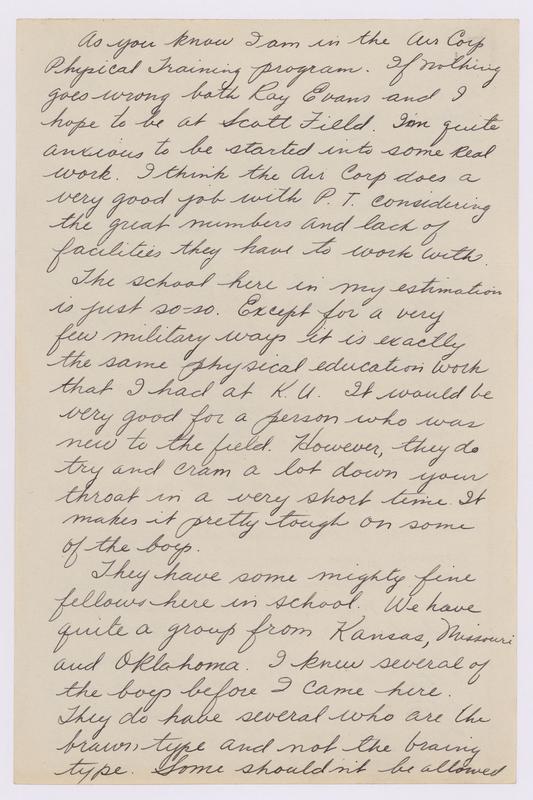 As you know I am in the Air Corp
Physical Training program. If nothing
goes wrong both Ray Evans and I
hope to be at Scott Field. I'm quite
anxious to be started into some real
work. I think the Air Corp does a
very good job with P. T. considering
the great numbers and lack of
facilities they have to work with.
The school here in my estimation
is just so=so. Except for a very
few military ways it is exactly
the same physical education work
that I had at K.U. It would be
very good for a person who was
new to the field. However, they do
try and cram a lot down your
throat in a very short time. It
makes it pretty tough on some
of the boys.
They have some mighty fine
fellows here in school. We have
quite a group from Kansas, Missouri
and Oklahoma. I knew several of
the boys before I came here.
They do have several who are the
brawn type and not the brainy
type. Some shouldn't be allowed